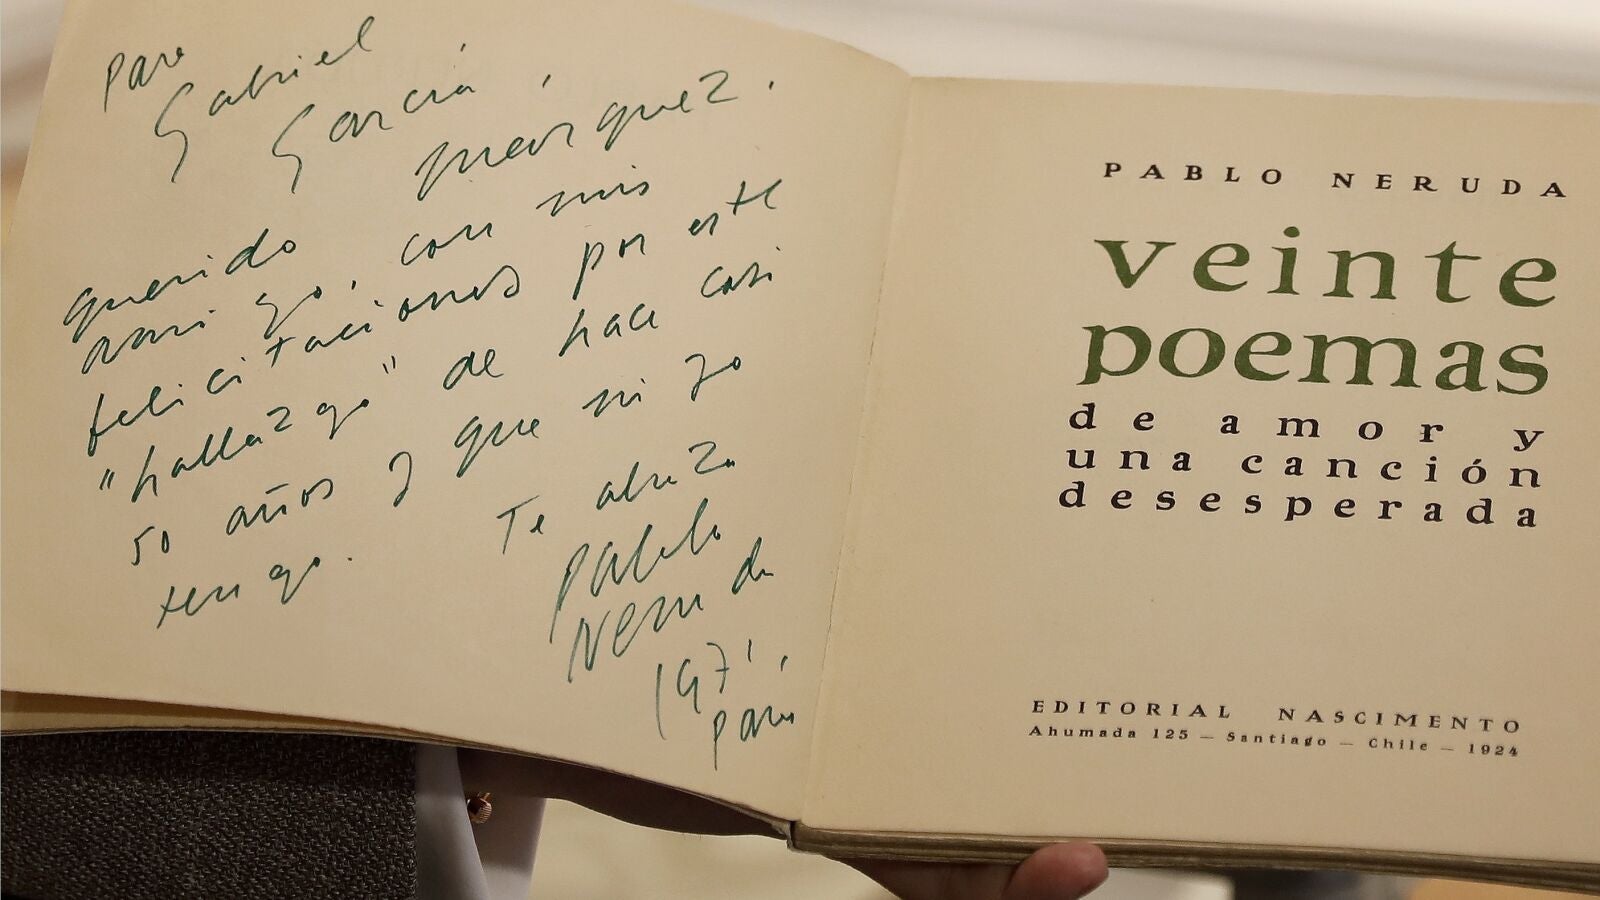 Para
Gabriel
García
Márquez.
querido
amigo, con mis
felicitaciones por este
"hallazgo" de hace casi
50 años y que ni yo
tengo.
Te abraza
Pablo
Neruda
1971,
Paris
PABLO NERUDA
veinte
poemas
de amor y
una canción
desesperada
EDITORIAL NASCIMENTO
Ahumada 125 — Santiago — Chile — 1924